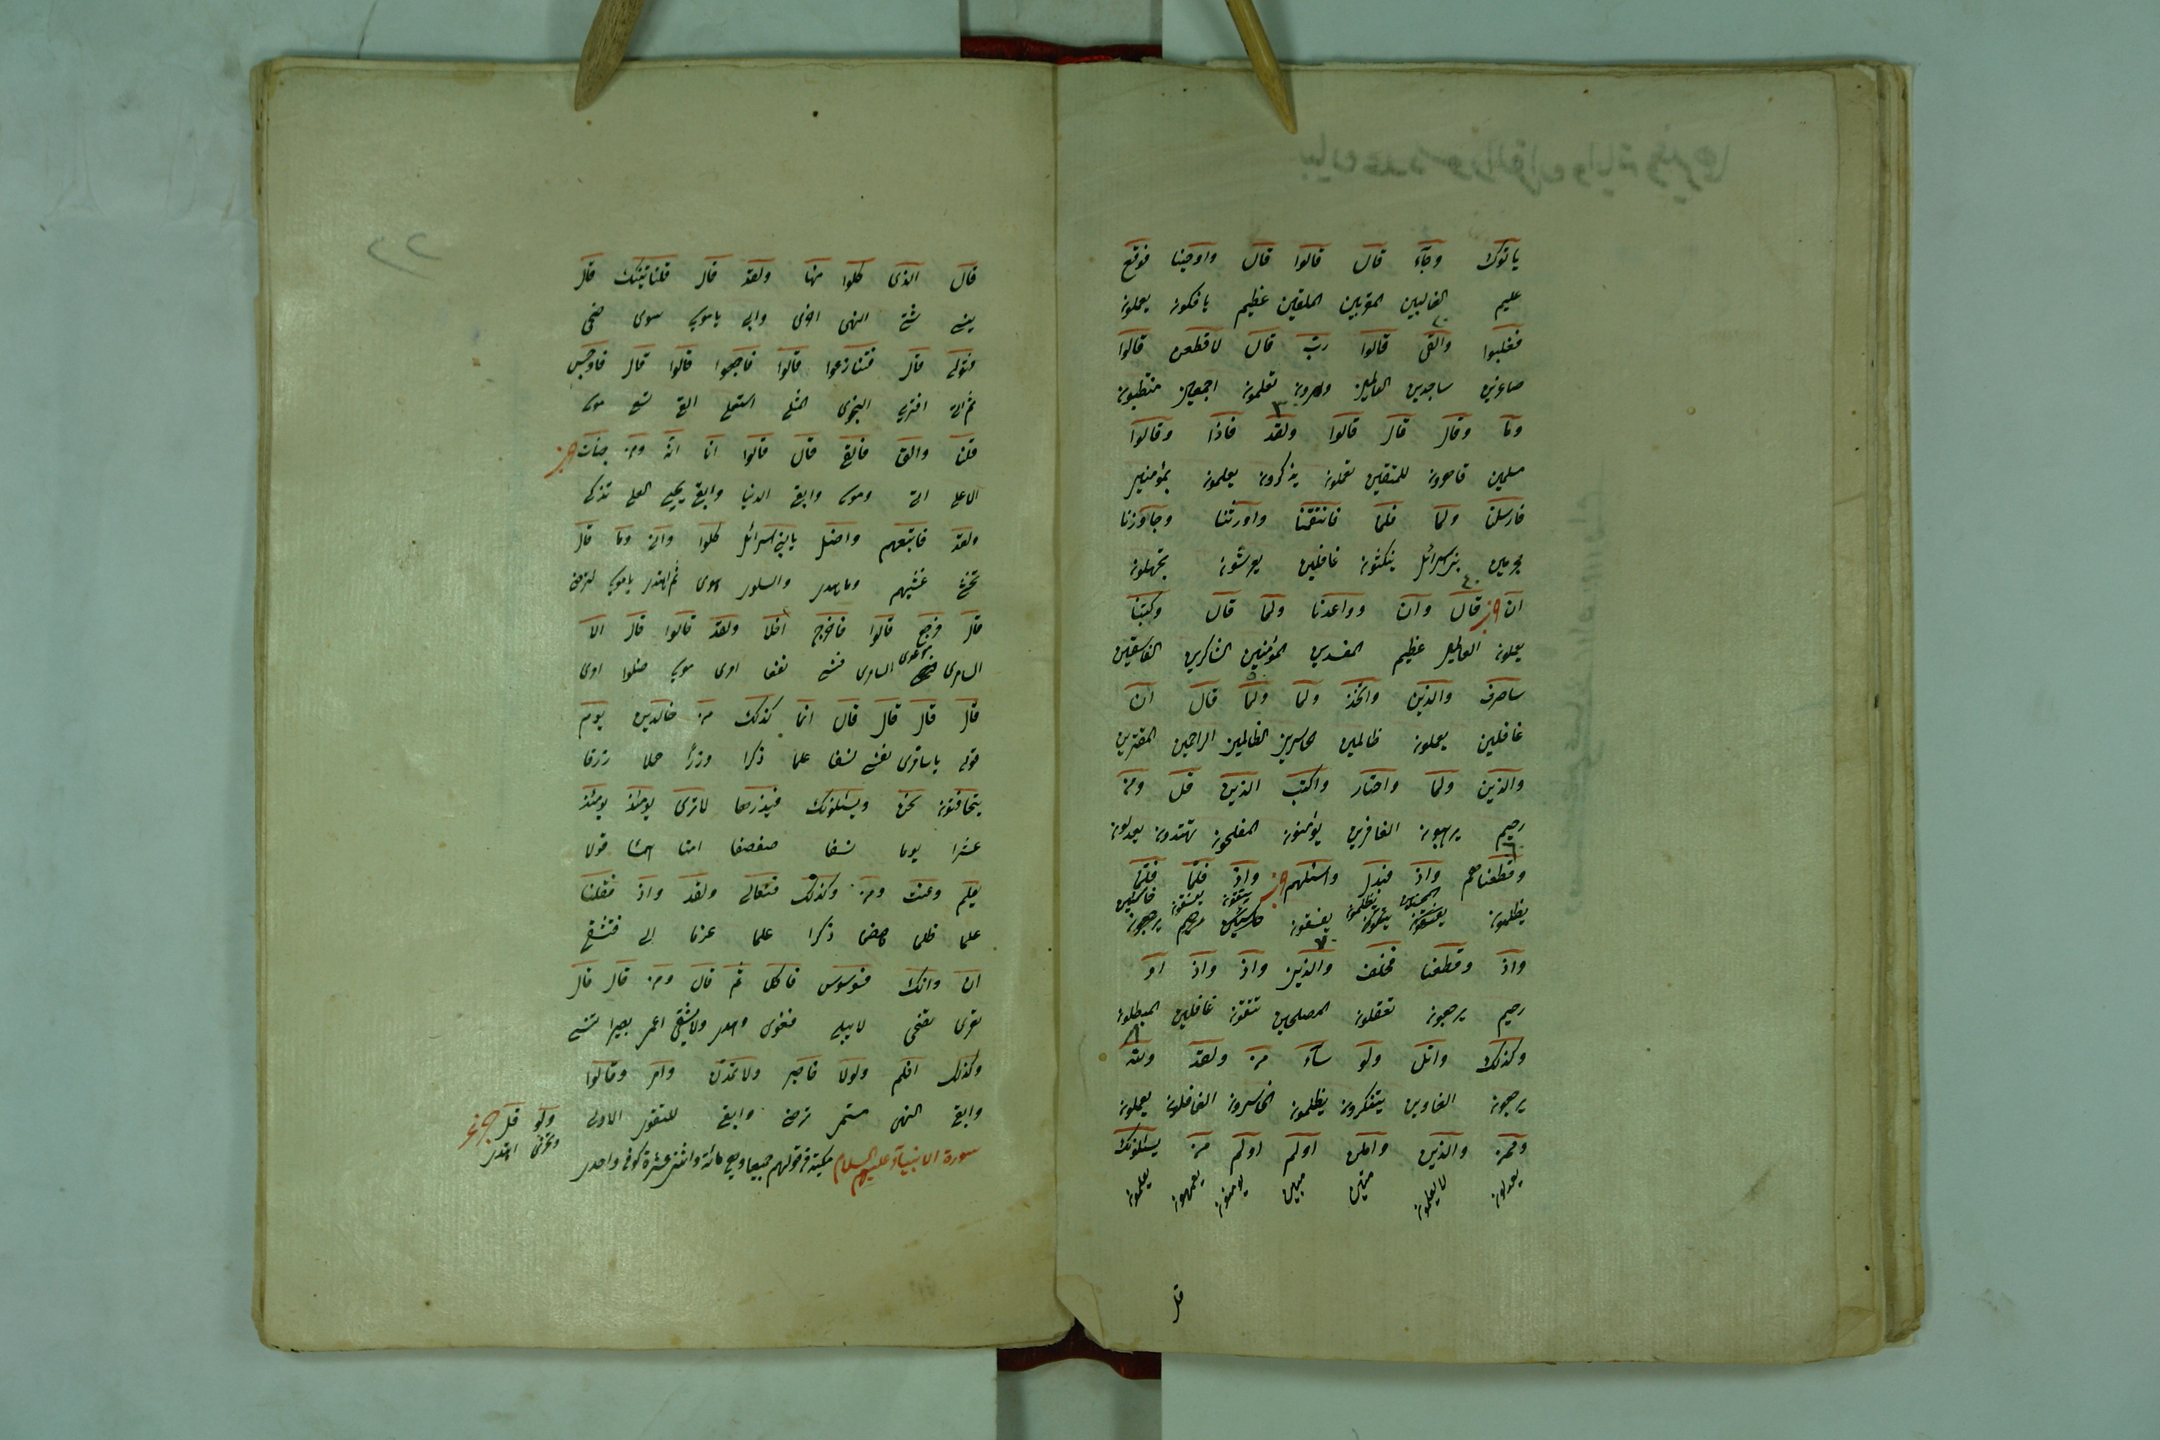 ياتوك وجآء قال قالوا قال واوحينا فوقع
عليم الغالبين المقربين الملقين عظيم يافكون يعملون
فغلبوا والقى قالوا رب قال لاقطعن قالوا
صاغرين ساجدين العالمين وهرون تعلمون اجمعين منقلبون
وما وقال قال قالوا ولقد فاذا وقالوا
مسلمين قاهرون للمتقين تعملون يذكرون يعلمون بمؤمنين
فارسلنا ولما فلما فانتقمنا واورثنا وجاوزنا
مجرمين بنى اسرائل ينكثون غافلين يعرشون تجهلون
ان قال وان وواعدنا ولما قال وكتبنا
يعملون العالمين عظيم المفسدين المؤمنين الشاكرين الفاسقين
ساصرف والذين واتخذ ولما ولما قال ان
غافلين يعملون ظالمين الخاسرين الظالمين الراحمين المفترين
والذين ولما واختار واكتب الذين قل ومن
رحيم يرهبون الغافرين يؤمنون المفلحون تهتدون يعدلون
وقطعناهم واذ فبدل واسئلهم واذ فلما فلما
يظلمون المحسنين يظلمون يفسقون يتقون يفسقون خاسئين
واذ وقطعنا فخلف والذين واذ واذ او
رحيم يرجعون تعقلون المصلحين تتقون غافلين المبطلون
وكذلك واتل ولو سآء من ولقد ولله
يرجعون الغاوين يتفكرون يظلمون الخاسرون الغافلون يعملون
وممن والذين واملى اولم اولم من يسئلونك
يعدلون لا يعلمون متين مبين يومنون يعمهون يعلمون
قل
قال الذى كلوا منها ولقد قال فلناتينك قال
ينسى شتى النهى اخرى وابى ياموسى سوى ضحى
فتولى قال فتنازعوا قالوا فاجمعوا قالوا قال فاوجس
ثم اتى افترى النجوى المثلى استعلى القى تسعى موسى
قلنا والق فالقى قال قالوا انا انه ومن جنات
الاعلى اتى وموسى وابقى الدنيا وابقى يحيى العلى تزكى
ولقد فاتبعهم واضل يابنى اسرائل كلوا وانى وما قال
تخشى غشيهم وماهدى والسلوى هوى ثم اهتدى ياموسى لترضى
قال فرجع قالوا فاخرج افلا ولقد قالوا قال الا
السامرى موعدى السامرى فنسى نفعا امرى موسى ضلوا امرى
قال قال قال قال انما كذلك من خالدين يوم
قولى ياسامرى نفسى نسفا علما ذكرا وزرا حملا زرقا
يتخافتون نحن ويسئلونك فيذرها لاترى يومئذ يومئذ
عشرا يوما نسفا صفصفا امتا همسا قولا
يعلم وعنت ومن وكذلك فتعالى ولقد واذ فقلنا
علما ظلما هضما ذكرا علما عزما ابى فتشقى
ان وانك فوسوس فاكلا ثم قال ومن قال قال
تعرى تضحى لايبلى فغوى وهدى ولايشقى اعمى بصيرا تنسى
وكذلك افلم ولولا فاصبر ولاتمدن وامر وقالوا
وابقى النهى مسمى ترضى وابقى للتقوى الاولى
ولو قل
ونخزى اهتدى
سورة الانبيآء عليهم السلام مكية فى قولهم جميعا وهى مائة واثنتى عشرة كوفى واحدى